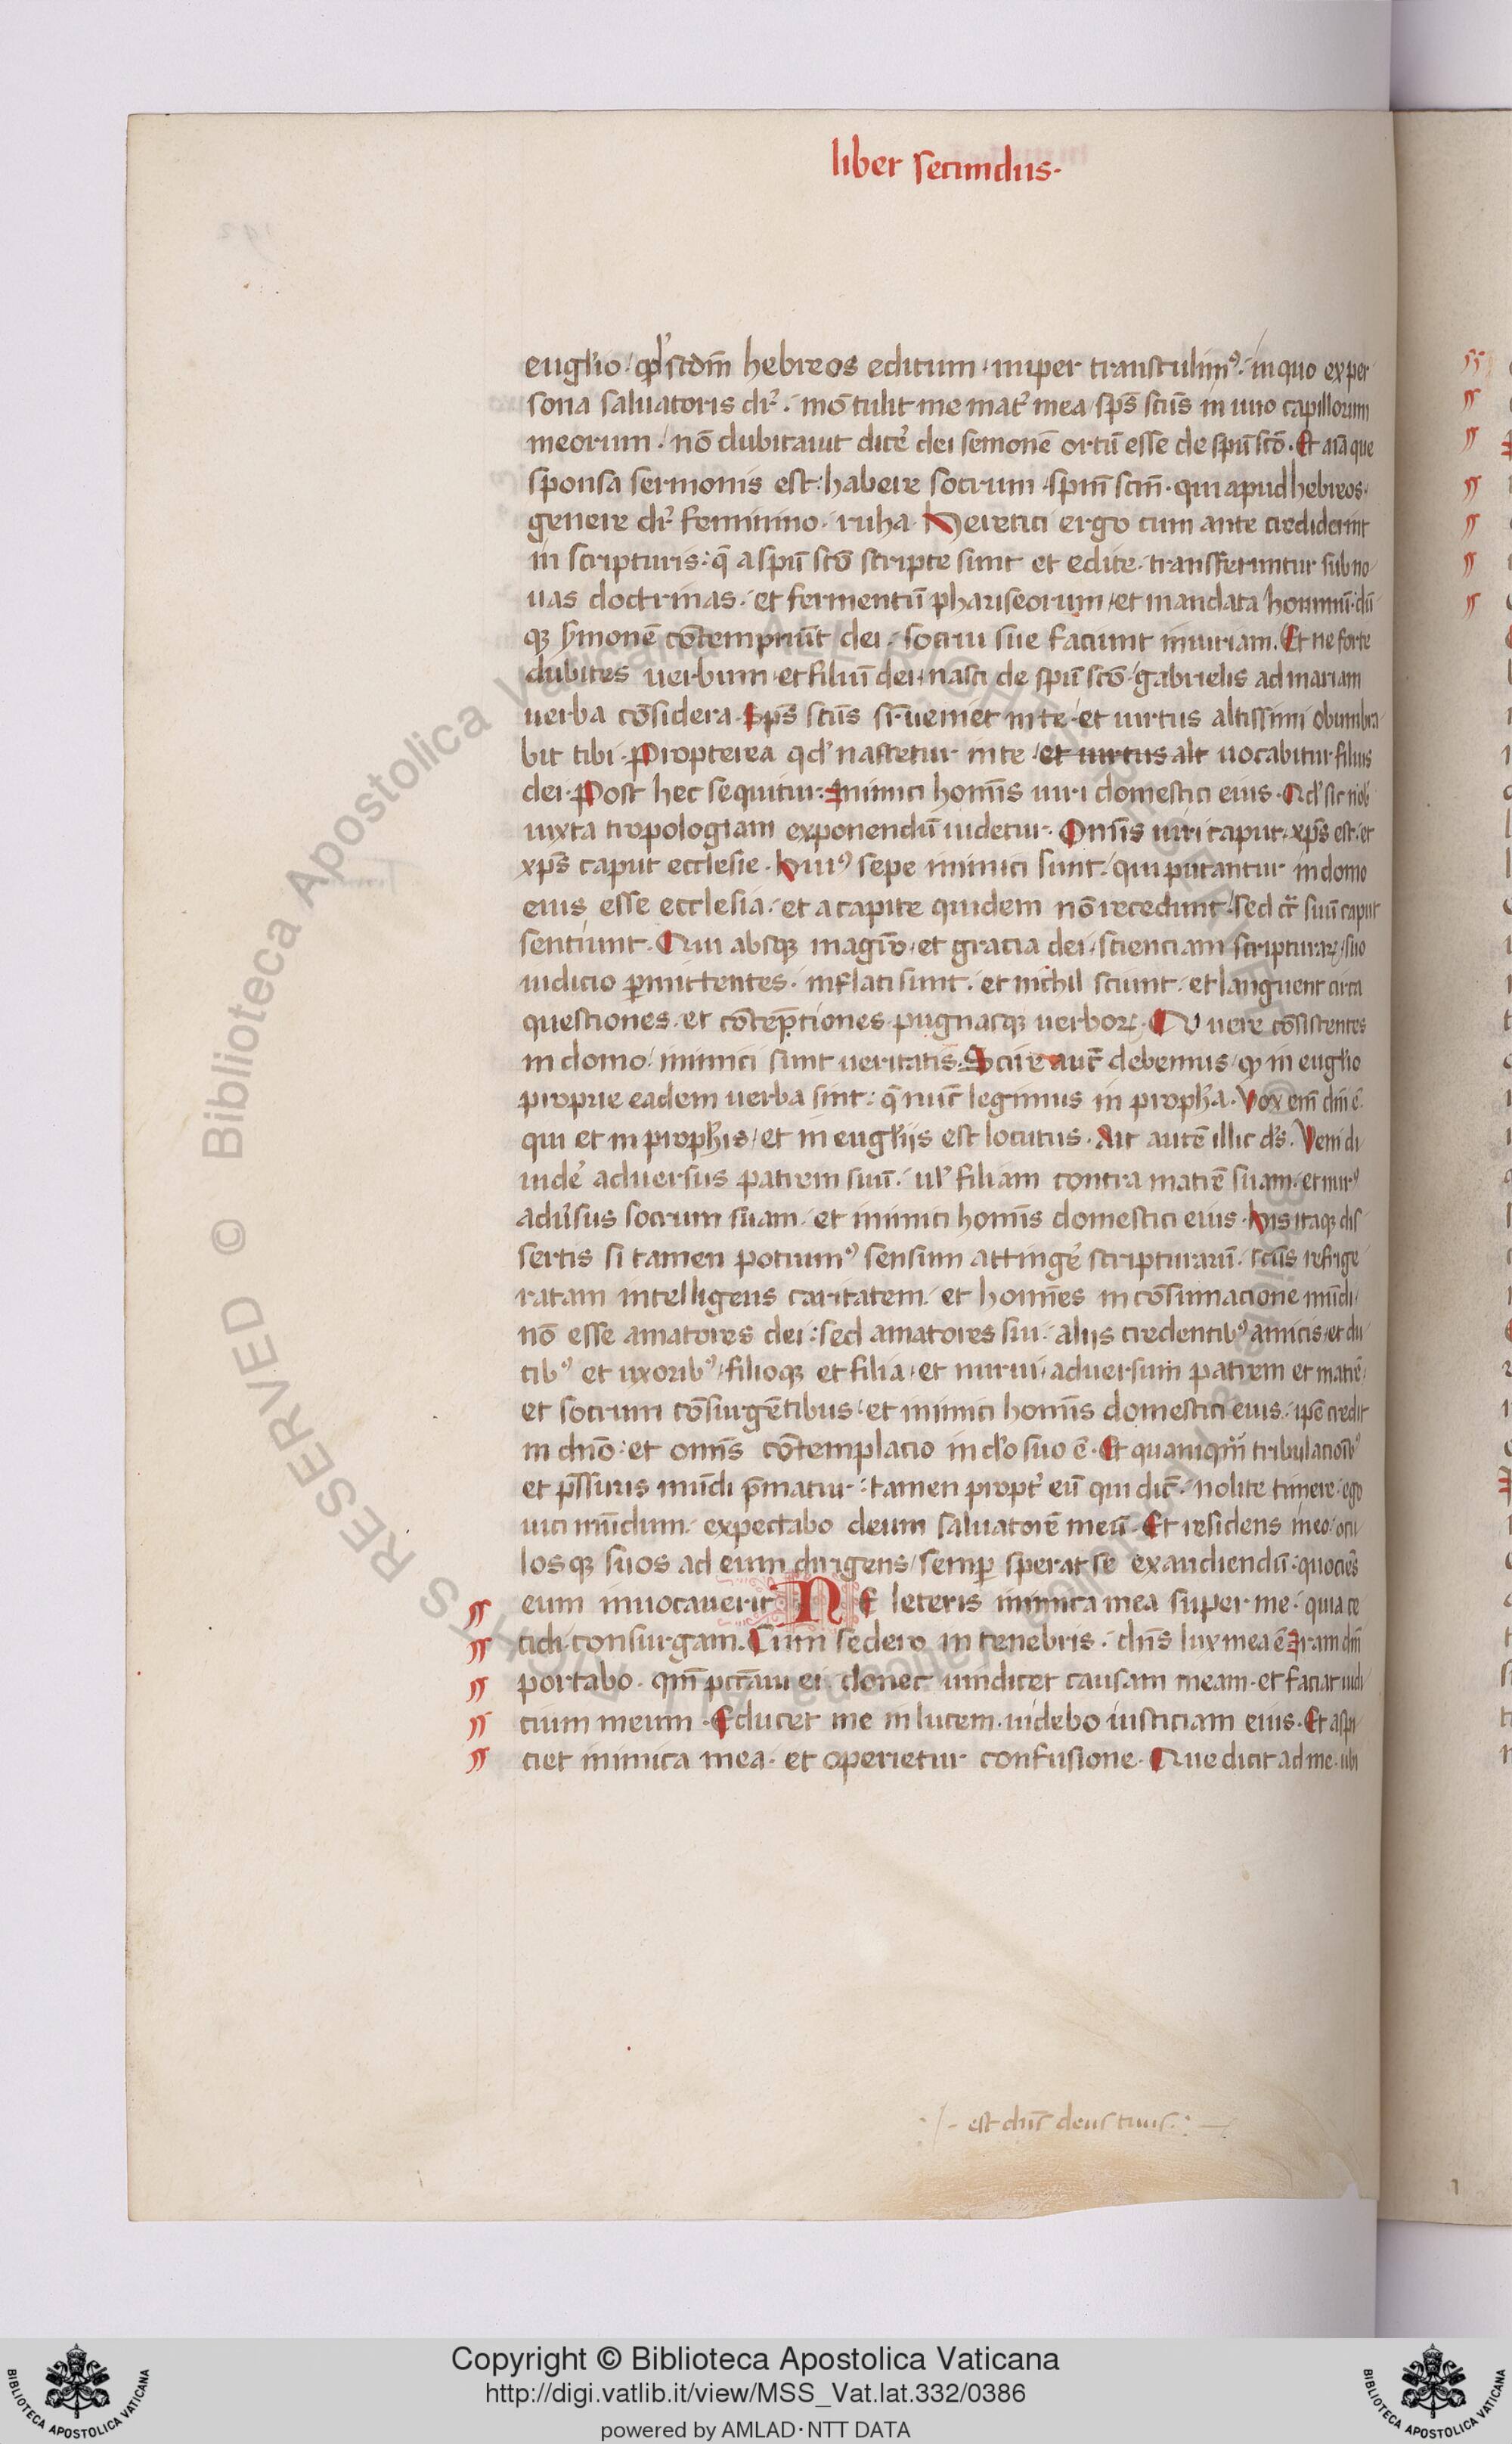 liber secundus·
euglio / qd' scdm̄ hebreos editum / nuper transtulim⁹ · in quo ex per
sona saluatoris dr̄ · mō tulit me mat' mea / sp̄s scūs in uno capillorum
meorum / nō dubitauit dice' dei semonē ortū esse de spū scō · Et aīa que
sponsa sermonis est : habere socrum · spm̄ scm̄ · qui apud hebreos ·
genere dr̄ feminino · ruha · Heretici ergo cum ante crediderint
in scripturis : q̄ a spū scō scripte sunt et edite · transferuntur sub no
uas doctrinas · et fermentū phariseorum / et mandata hominū · dū
qꝫ s'monē cōtempnūt dei · socrui sue faciunt iniuriam. Et ne forte
dubites uerbum / et filiū dei / nasci de spū scō / gabrielis ad mariam
uerba cōsidera · Sp̄s scūs sr̄ ueniet in te / et uirtus altissimi obumbra
bit tibi · Propterea qd' nascetur in te / et uirtus alt uocabitur filius
dei · Post hec sequitur : Inimici homīs uiri domestici eius · Qd' sic nob'
iuxta tropologiam exponendū uidetur · Omīs uiri caput · xp̄s est · et
xp̄s caput ecclesie · Hui⁹ sepe inimici sunt / qui putantur in domo
eius esse ecclesia · et a capite quidem nō recedunt / sed cr̄ suū caput
sentiunt · Qui absqꝫ magr̄o / et gracia dei / scienciam scripturaꝝ / suo
iudicio ꝑmittentes · inflati sunt · et nichil sciunt · et languent circa
questiones · et cōtēpciones pugnasqꝫ uerboꝝ · Qui uere cōsistentes
in domo / inimici sunt ueritatis · Scire aut̄ debemus / ꝙ in euglio
proprie eadem uerba sint : q̄ nūc legimus in proph'a · Vox em̄ dm̄ ē ·
qui et in proph'is / et in eugl'ijs est locutus · Ait autē illic d's · Veni di
uide' aduersus patrem suū · ul' filiam contra matrē suam · et nur⁹
adu'sus socrum suam · et inimici homīs domestici eius · His itaqꝫ dis
sertis si tamen potuim⁹ sensum attinge' scripturarū · scūs refrige
ratam intelligens caritatem · et homīes in cōsumacione mūdi ·
nō esse amatores dei : sed amatores sui · alijs credentib⁹ amicis / et du
cib⁹ et uxorib⁹ / filioqꝫ et filia / et nurui / aduersum patrem et matrē /
et socrum cōsurgētibus / et inimici homīs domestici eius · ip̄e credit
in dn̄o : et omīs cōtemplacio in d'o suo ē · Et quamqm̄ tribulacioīb⁹
et p̄ssuris mūdi p̄matur : tamen propt' eū qui dic̄ · nolite timere · ego
uici mūdum · expectabo deum saluatorē meū · Et residens in eo / ocu
losqꝫ suos ad eum dirigens / semꝑ sperat se exaudiendū : quociēs
eum inuocauerit NE leteris inimica mea super me : quia ce
cidi · consurgam. Cum sedero in tenebris · dn̄s lux mea ē Iram dm̄
portabo · qm̄ pccāui ei · donec iudicet causam meam · et faciat iudi
cium meum · Educet me in lucem · uidebo iusticiam eius · Et aspi
ciet inimica mea · et operietur confusione · Que dicit ad me · ubi
est dn̄s deus tuus
Copyright © Biblioteca Apostolica Vaticana
http://digi.vatlib.it/view/MSS_Vat.lat.332/0386
powered by AMLAD·NTT DATA